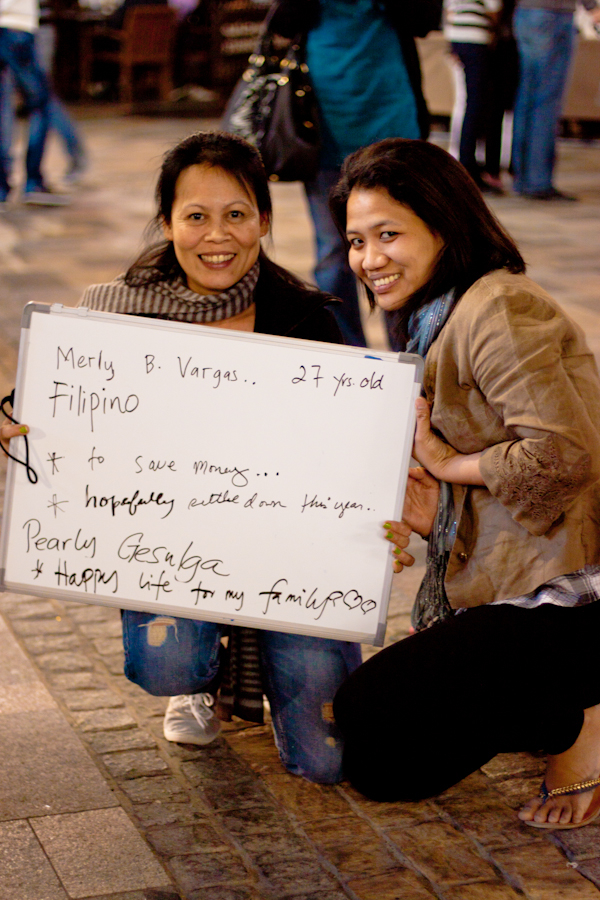 Merly B. Vargas.. 27 yrs. old
Filipino
* to save money...
* hopefully settle down this year..
Pearly Gesulga
* Happy life for my family ♡♡♡